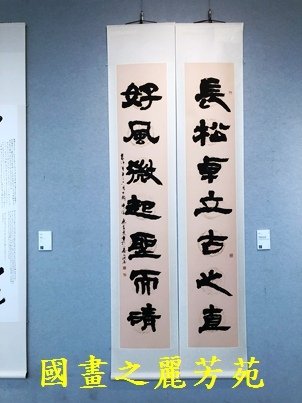 長松卓立古之直
好風微起聖而清
國畫之麗芳苑